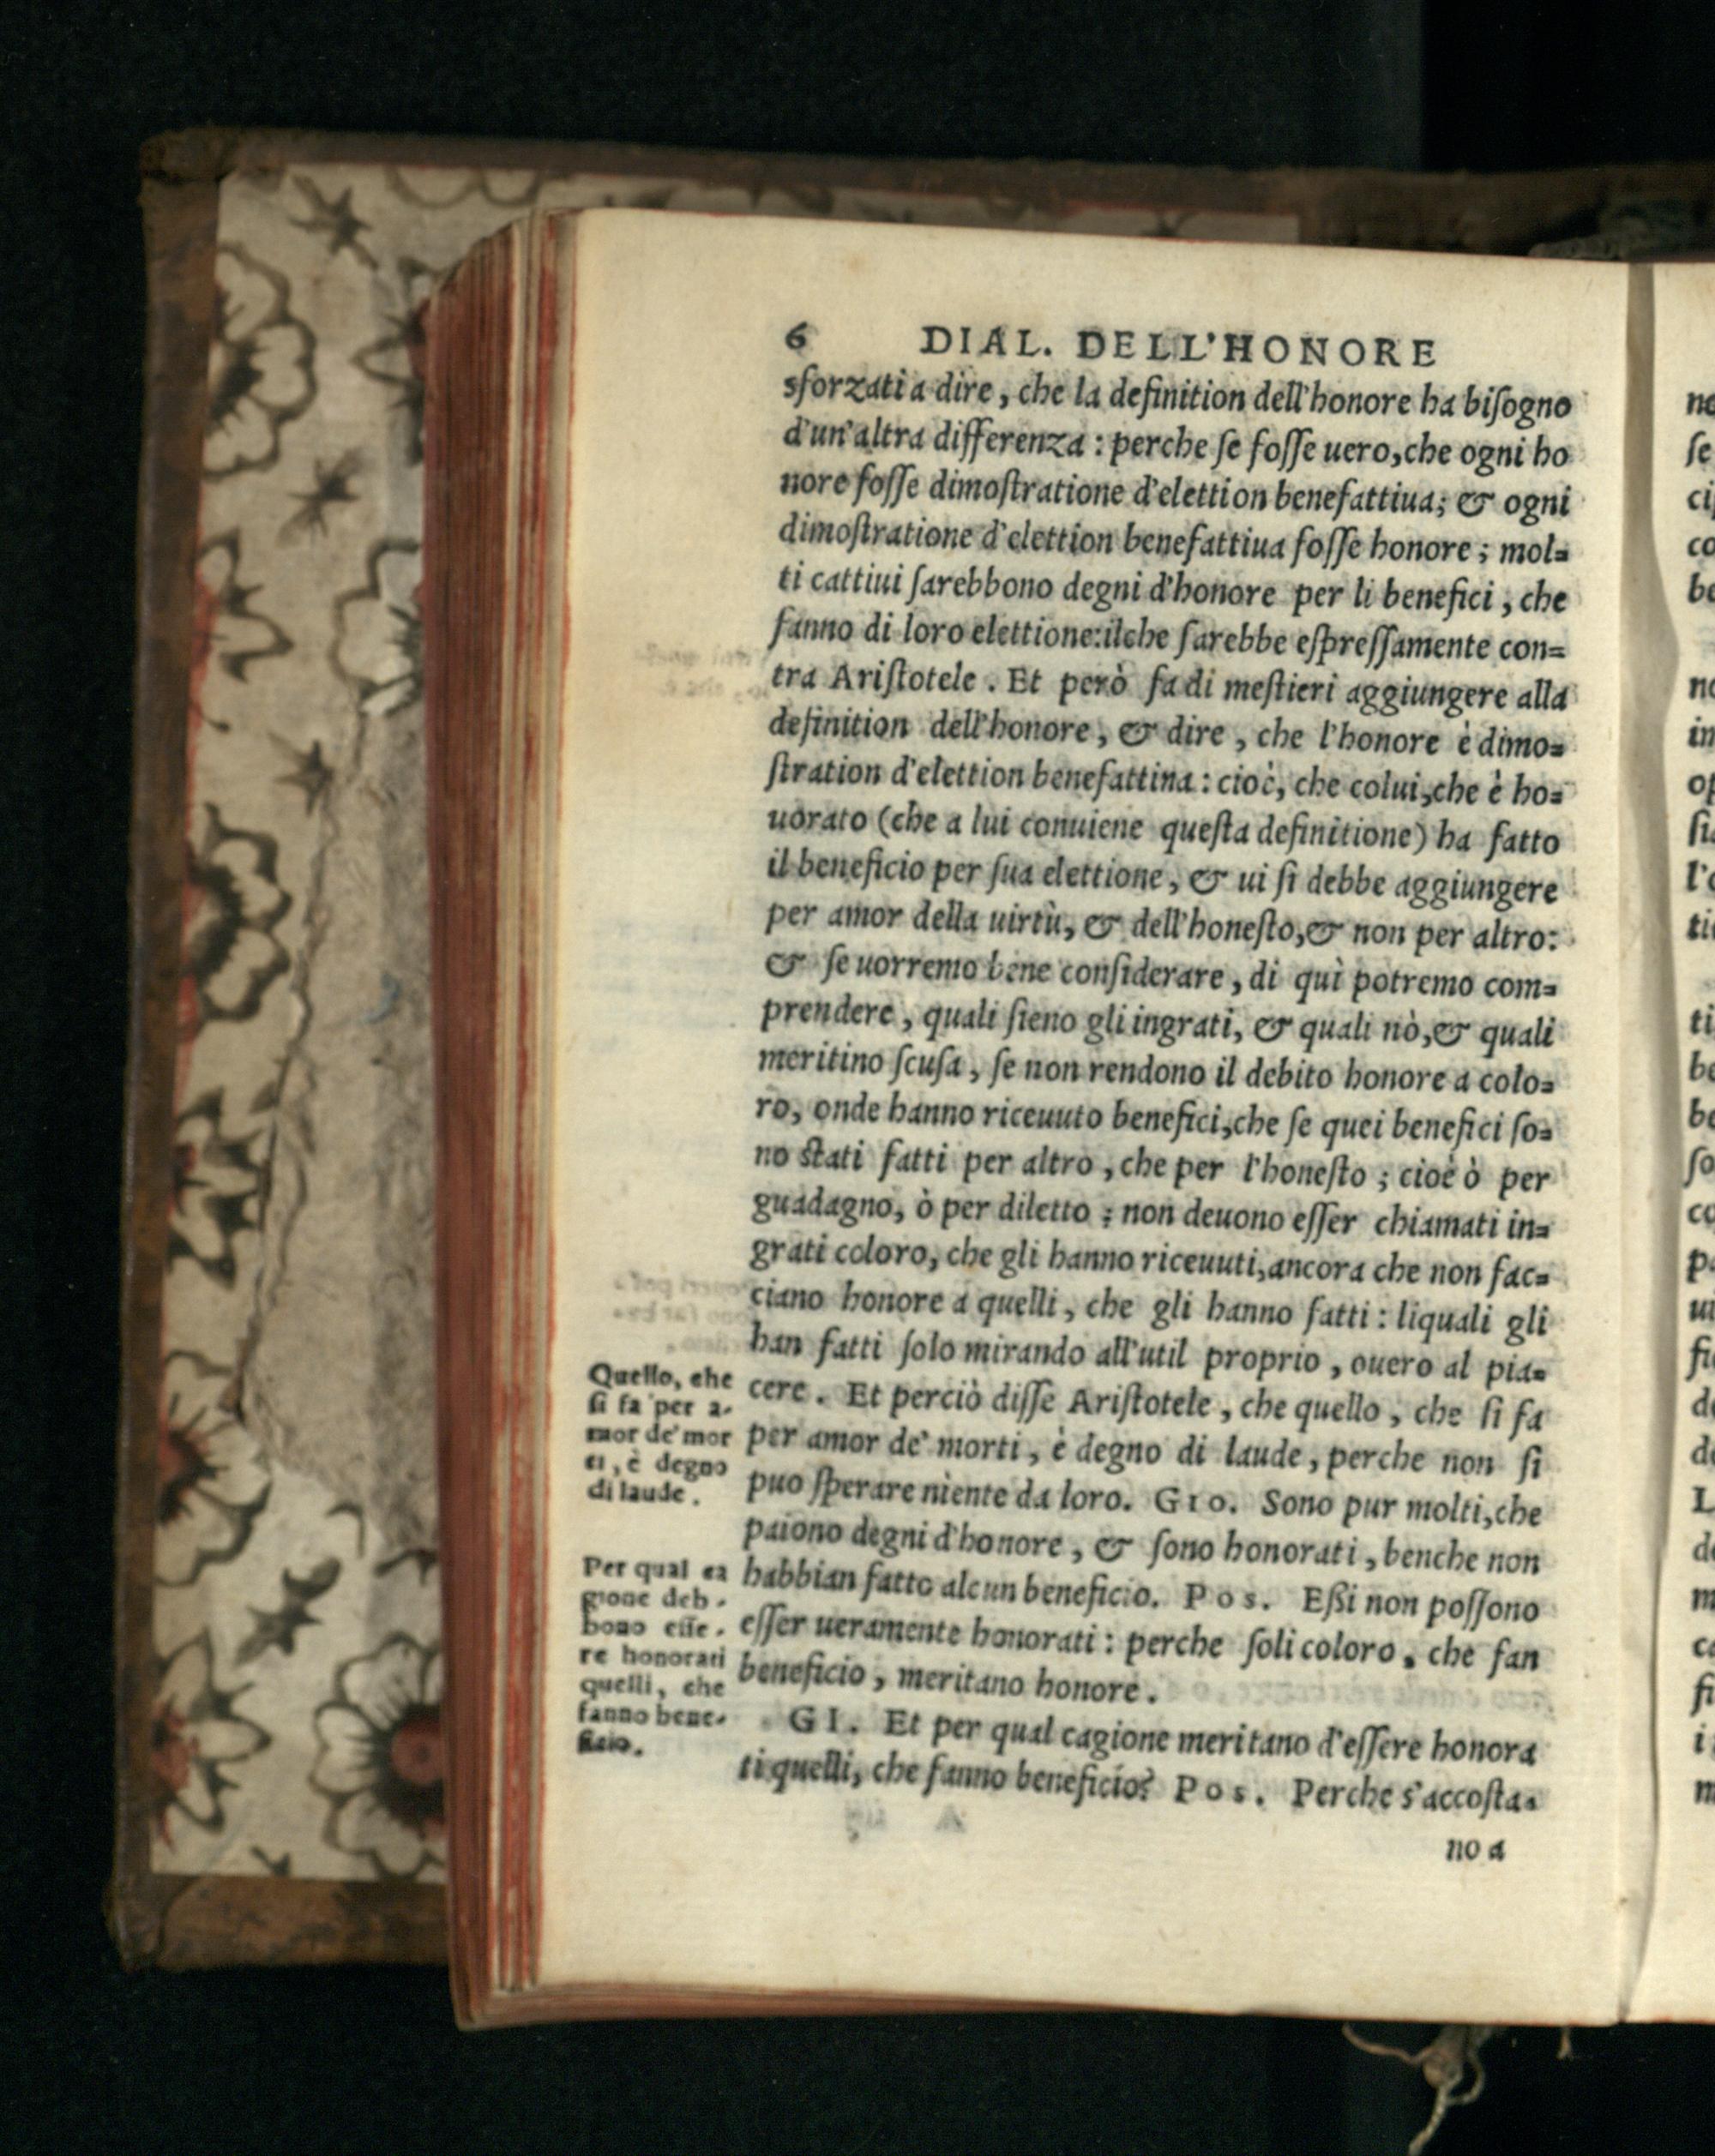 6 DIAL. DELL'HONORE
sforzati a dire, che la definition dell'honore ha biſogno
d'un'altra differenza: perche ſe foſſe uero, che ogni ho
nore foſſe dimoſtratione d'elettion benefattiua; & ogni
dimoſtratione d'elettion benefattiua foſſe honore; mol=
ti cattiui ſarebbono degni d'honore per li benefici, che
fanno di loro elettione: ilche ſarebbe eſpreſſamente con=
tra Ariſtotele. Et però fa di meſtieri aggiungere alla
definition dell'honore, & dire, che l'honore è dimo=
ſtration d'elettion benefattina: cioè, che colui, che è ho=
uorato (che a lui conuiene queſta definitione) ha fatto
il beneficio per ſua elettione, & ui ſi debbe aggiungere
per amor della uirtù, & dell'honeſto, & non per altro:
& ſe uorremo bene conſiderare, di quì potremo com=
prendere, quali ſieno gli ingrati, & quali nò, & quali
meritino ſcuſa, ſe non rendono il debito honore a colo=
ro, onde hanno riceuuto benefici, che ſe quei benefici ſo=
no stati fatti per altro, che per l'honeſto; cioè ò per
guadagno, ò per diletto; non deuono eſſer chiamati in=
grati coloro, che gli hanno riceuuti, ancora che non fac=
ciano honore a quelli, che gli hanno fatti: liquali gli
han fatti ſolo mirando all'util proprio, ouero al pia=
cere. Et perciò diſſe Ariſtotele, che quello, che ſi fa
per amor de' morti, è degno di laude, perche non ſi
puo ſperare niente da loro. GIO. Sono pur molti, che
paiono degni d'honore, & ſono honorati, benche non
habbian fatto alcun beneficio. Pos. Eßi non poſſono
eſſer ueramente honorati: perche ſoli coloro, che fan
beneficio, meritano honore.
GI. Et per qual cagione meritano d'eſſere honora
ti quelli, che fanno beneficio? Pos. Perche s'accoſta=
no a
Quello, che
ſi fa per a-
mor de' mor
ti, è degno
di laude.
Per qual ca
gione deb-
bono eſſe-
re honorati
quelli, che
fanno bene-
ficio.